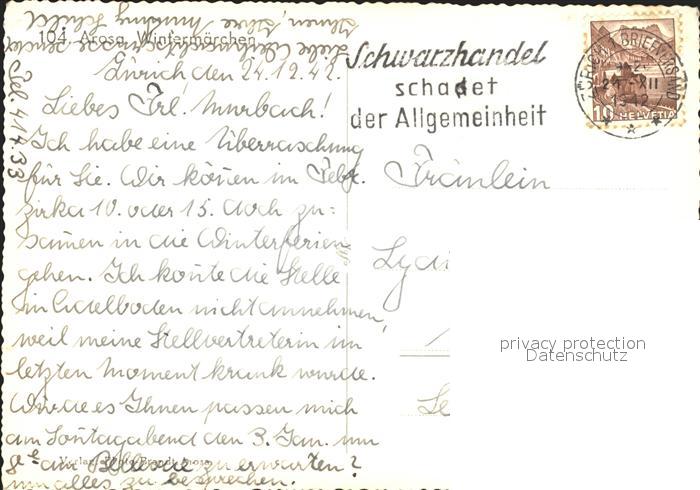 104. Arosa, Wintermärchen
Zürich den 24.12.42.
Liebes Frl. Murbach!
Ich habe eine Überraschung
für Sie. Wir könen im Febr.
zirka 10. oder 15. doch zu-
samen in die Winterferien
gehen. Ich konte die Stelle
in Adelboden nicht annehmen,
weil meine Stellvertreterin im
letzten Moment krank wurde.
Würde es Ihnen passen mich
am Sontagabend den 3. Jan. um
8 am Bellevue zu erwarten?
um alles zu besprechen.
Verlag Photo Brandt Arosa
Ihnen, Ihre
Liebe
Schwarzhandel
schadet
der Allgemeinheit
BRIEFVERSAND
XII
10
HELVETIA
Fräulein
privacy protection
Datenschutz